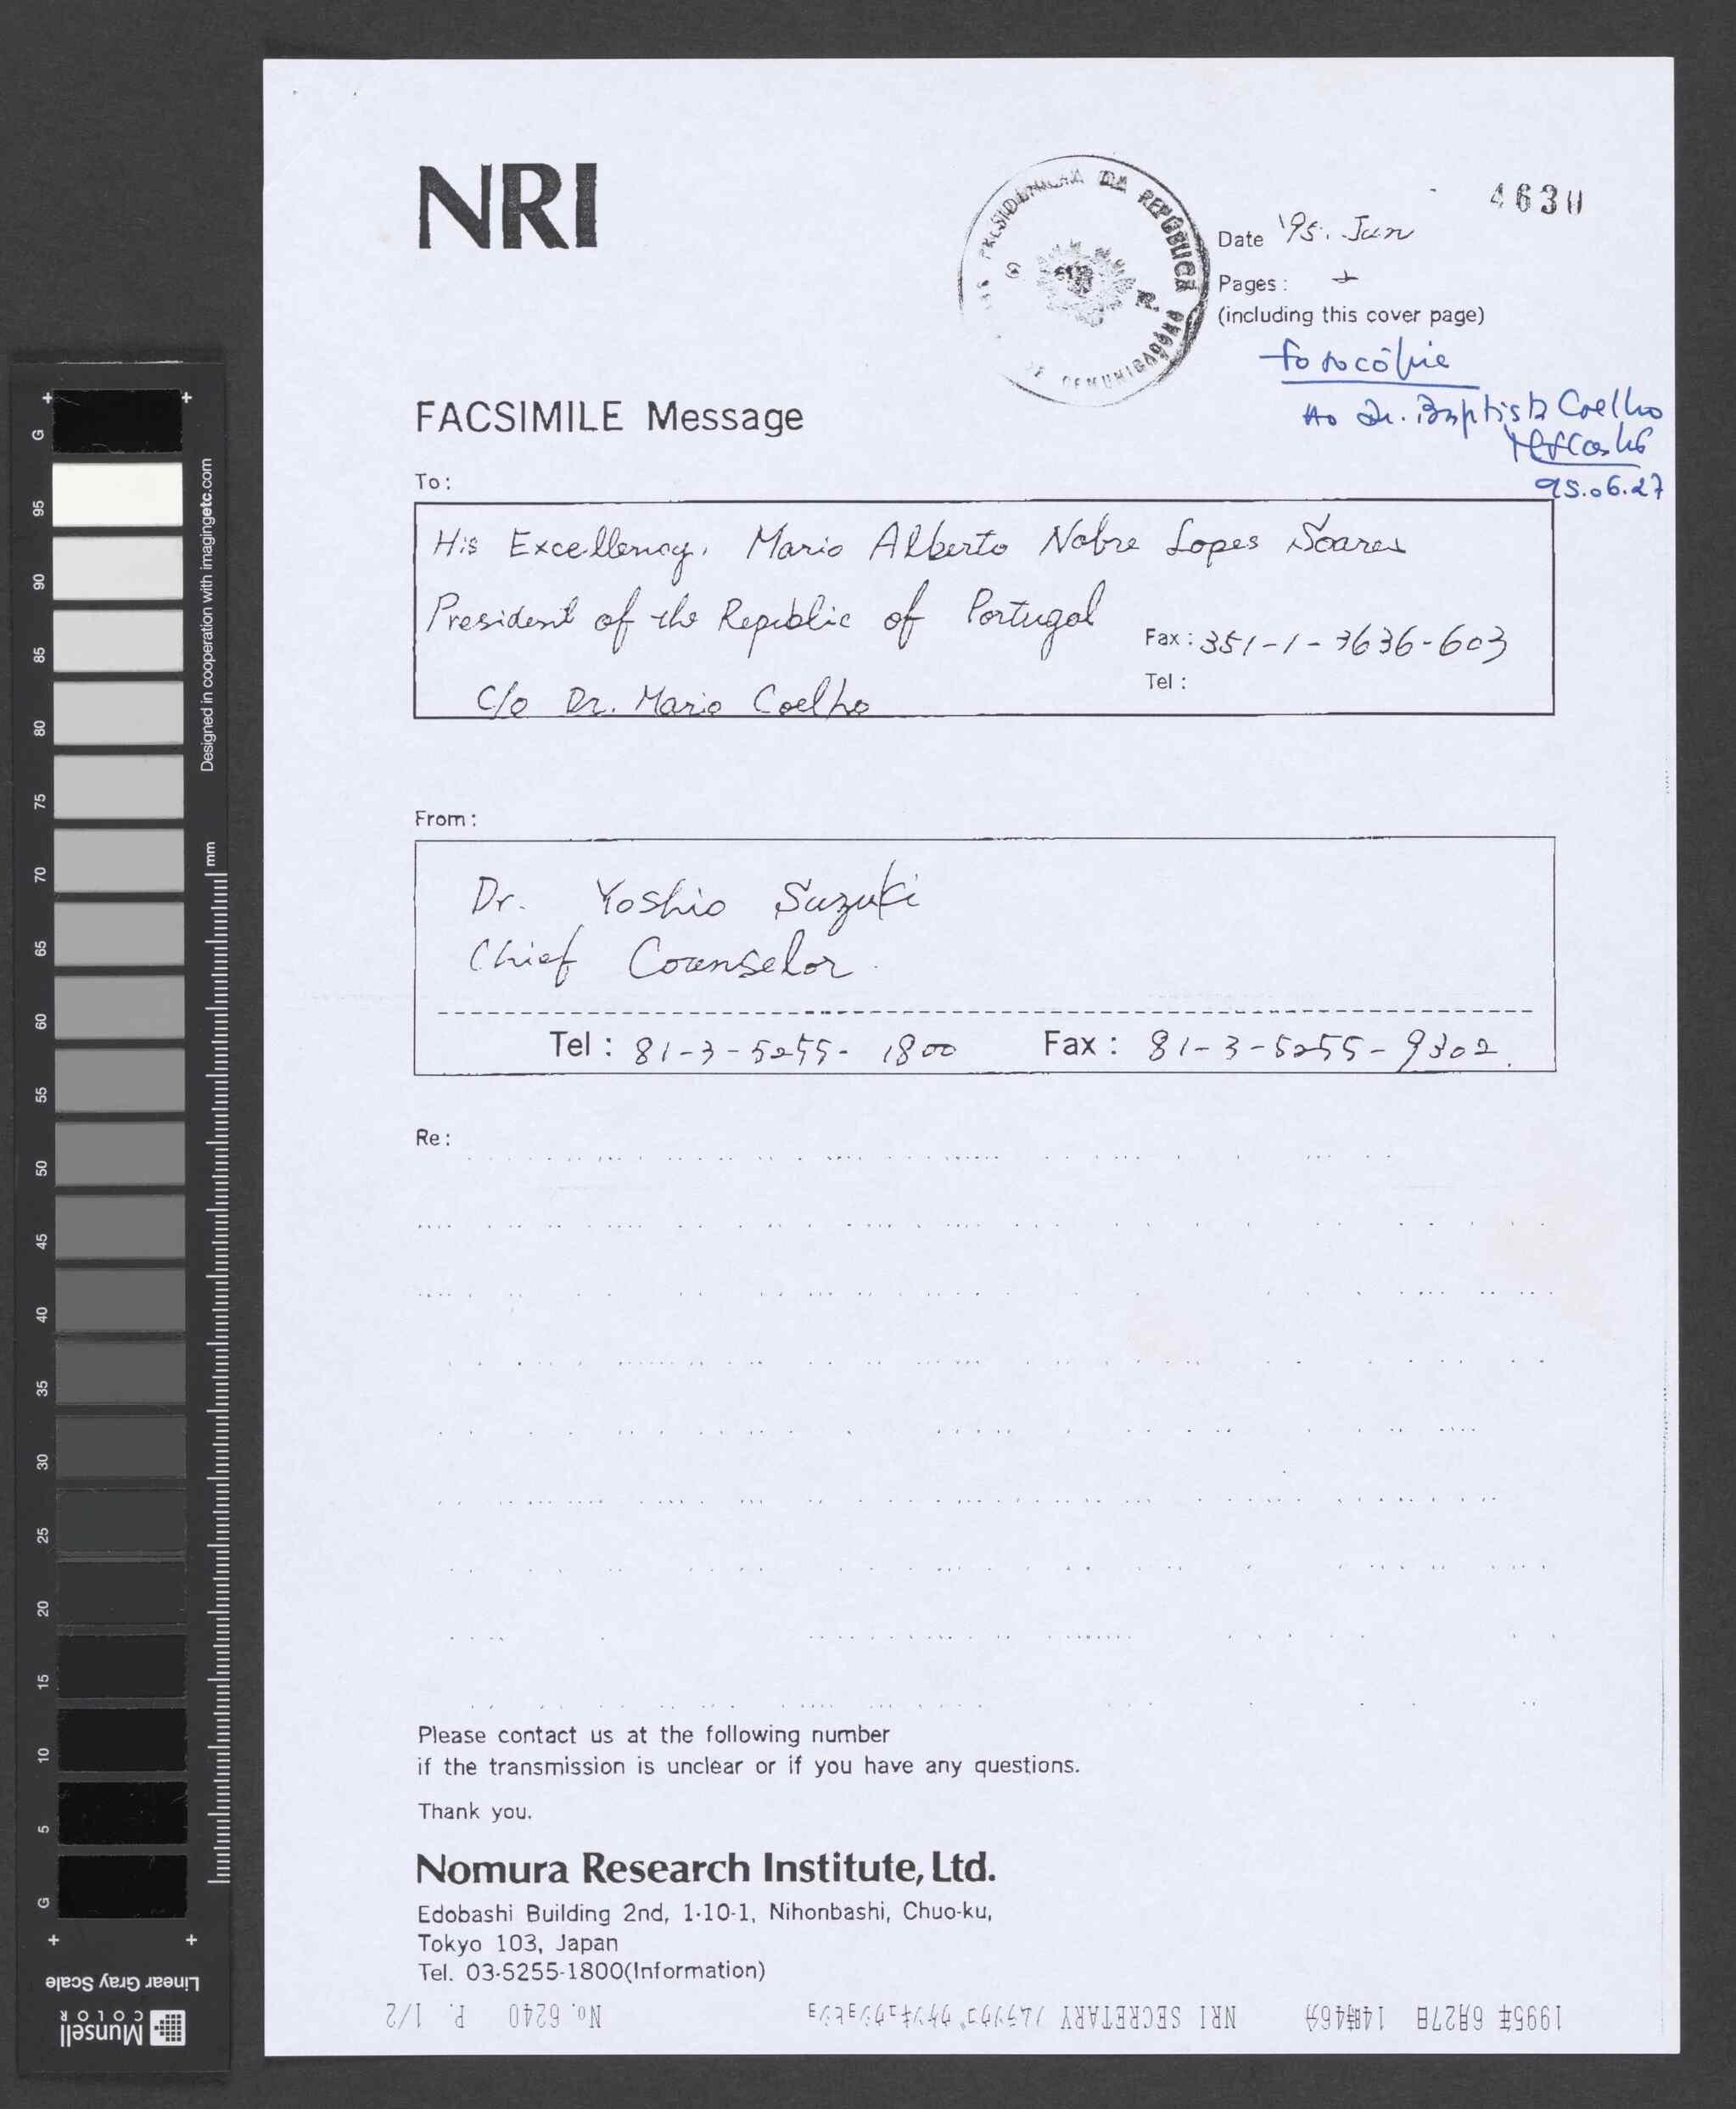 NRI
4630
PRESIDENCIA DA REPÚBLICA
Date '95. Jun
Pages:
(including this cover page)
fotocópia
Ao Dr. Baptista Coelho
95.06.27
FACSIMILE Message
To:
His Excellency. Mario Alberto Nobre Lopes Soares
President of the Republic of Portugal
Fax: 351-1-3636-603
Tel:
C/o Dr. Mario Coelho
From:
Dr. Yoshio Suzuki
Chief Counselor.
Tel: 81-3-5255-1800 Fax: 81-3-5255-9302.
Re:
Please contact us at the following number
if the transmission is unclear or if you have any questions.
Thank you.
Nomura Research Institute, Ltd.
Edobashi Building 2nd, 1-10-1, Nihonbashi, Chuo-ku,
Tokyo 103, Japan
Tel. 03-5255-1800(Information)
1995年 6月27日 14時46分 NRI SECRETARY No. 6240 P. 1/2
Designed in cooperation with imagingetc.com
mm
G
95
90
85
80
75
70
65
60
55
50
45
40
35
30
25
20
15
10
5
G
Linear Gray Scale
Munsell
COLOR